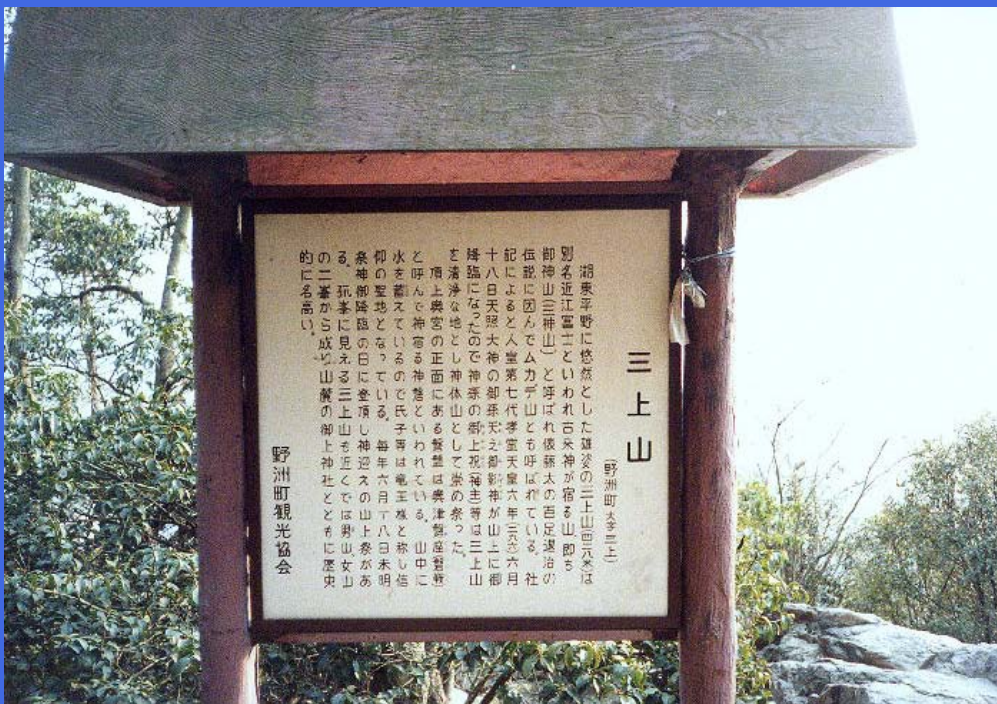 三上山
(野洲町大字三上)
湖東平野に悠然とした雄姿の三上山は
別名近江富士といわれ古来神が宿る山、即ち
御神山(三神山)と呼ばれ俵藤太の百足退治の
伝説に因んでムカデ山とも呼ばれている。社
記によると人皇第七代孝霊天皇六年六月
十八日天照大神の御孫天之御影神が山上に御
降臨になったので神孫の御上祝(神主)等は三上山
を清浄な地とし神体山として崇め祭った。
頂上奥宮の正面にある磐は奥津磐座
と呼んで神宿る神といわれている。山中に
水を蓄えているので氏子等は竜王様と称し信
仰の聖地となっている。毎年六月十八日未明
祭神御降臨の日に登頂し神迎えの山上祭があ
る。孤峯に見える三上山も近くでは男山、女山
の二峯から成り山麓の御上神社とともに歴史
的に名高い。
野洲町観光協会